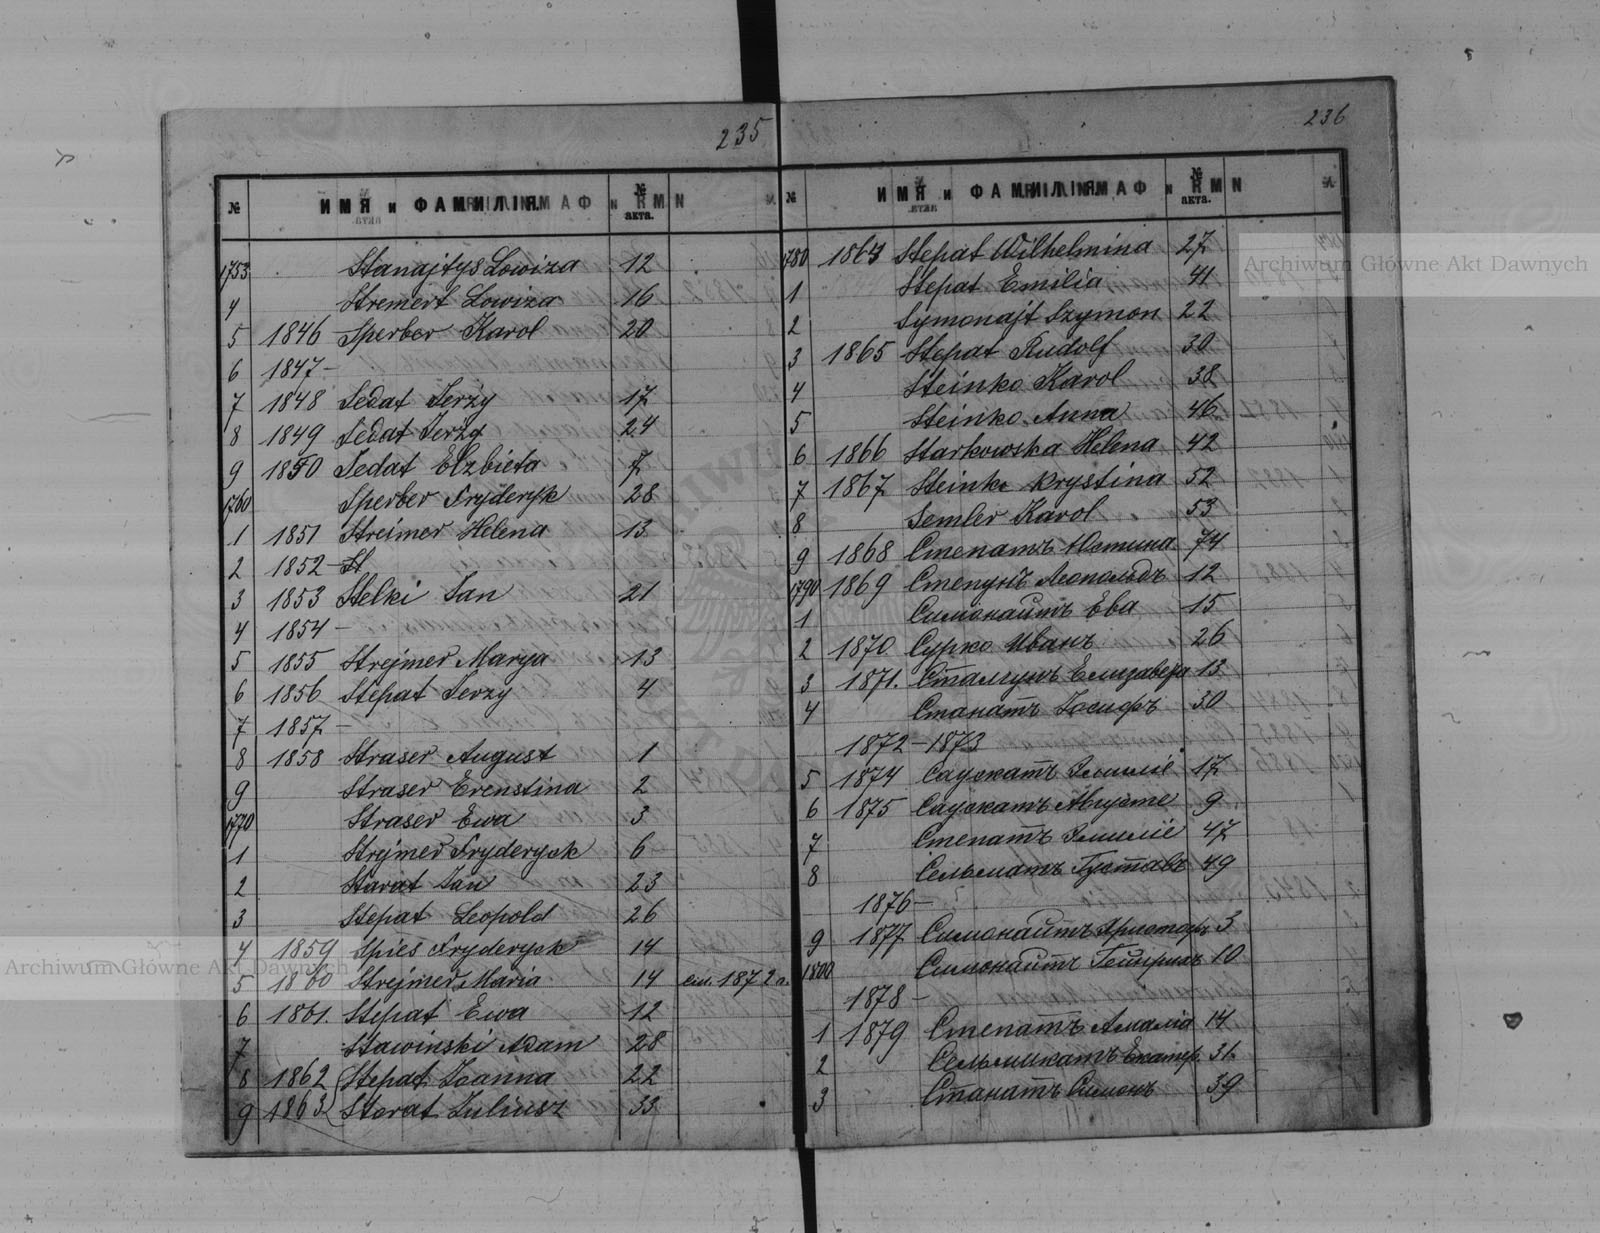 235
№ ИМЯ и ФАМИЛІЯ. № акта.
1753 Stanajtys Lowiza 12
4 Stremert Lowiza 16
5 1846 Sperber Karol 20
6 1847 -
7 1848 Sedat Jerzy 17
8 1849 Sedat Jerzy 24
9 1850 Sedat Elzbieta 7
1760 Sperber Fryderyk 28
1 1851 Streimer Helena 13
2 1852 - St
3 1853 Stelki Jan 21
4 1854 -
5 1855 Strejmer Marya 13
6 1856 Stepat Jerzy 4
7 1857 -
8 1858 Straser August 1
9 Straser Erenstina 2
1770 Straser Ewa 3
1 Strejmer Fryderyck 6
2 Starat Jan 23
3 Stepat Leopold 26
4 1859 Spies Fryderyck 14
5 1860 Strejmer Maria 14 см. 1872 г.
6 1861. Stepat Ewa 12
7 Stawinski Adam 28
8 1862 Stepat Joanna 22
9 1863 Storat Juliusz 33
236
№ ИМЯ и ФАМИЛІЯ. № акта.
1780 1864 Stepat Wilhelmina 27
1 Stepat Emilia 41
2 Symonajt Szymon 22
3 1865 Stepat Rudolf 30
4 Steinko Karol 38
5 Steinko Anna 46
6 1866 Starkowska Helena 42
7 1867 Steinke Krystina 52
8 Semler Karol 53
9 1868 Степатъ Юстина 74
1790 1869 Степунъ Леопольдъ 12
1 Симонайтъ Ева 15
2 1870 Сурко Иванъ 26
3 1871. Сталгунъ Елизавета 13
4 Станатъ Іосифъ 30
1872 - 1873
5 1874 Саускатъ Эмиліе 17
6 1875 Саускатъ Августе 9
7 Степатъ Эмиліе 47
8 Сельматъ Густавъ 49
1876 -
9 1877 Симонайтъ Христофъ 3
1800 Симонайтъ Гейнрихъ 10
1878 -
1 1879 Степатъ Амалія 14
2 Сельмикатъ Екатер. 31.
3 Станатъ Симонъ 39
Archiwum Główne Akt Dawnych
Archiwum Główne Akt Dawnych